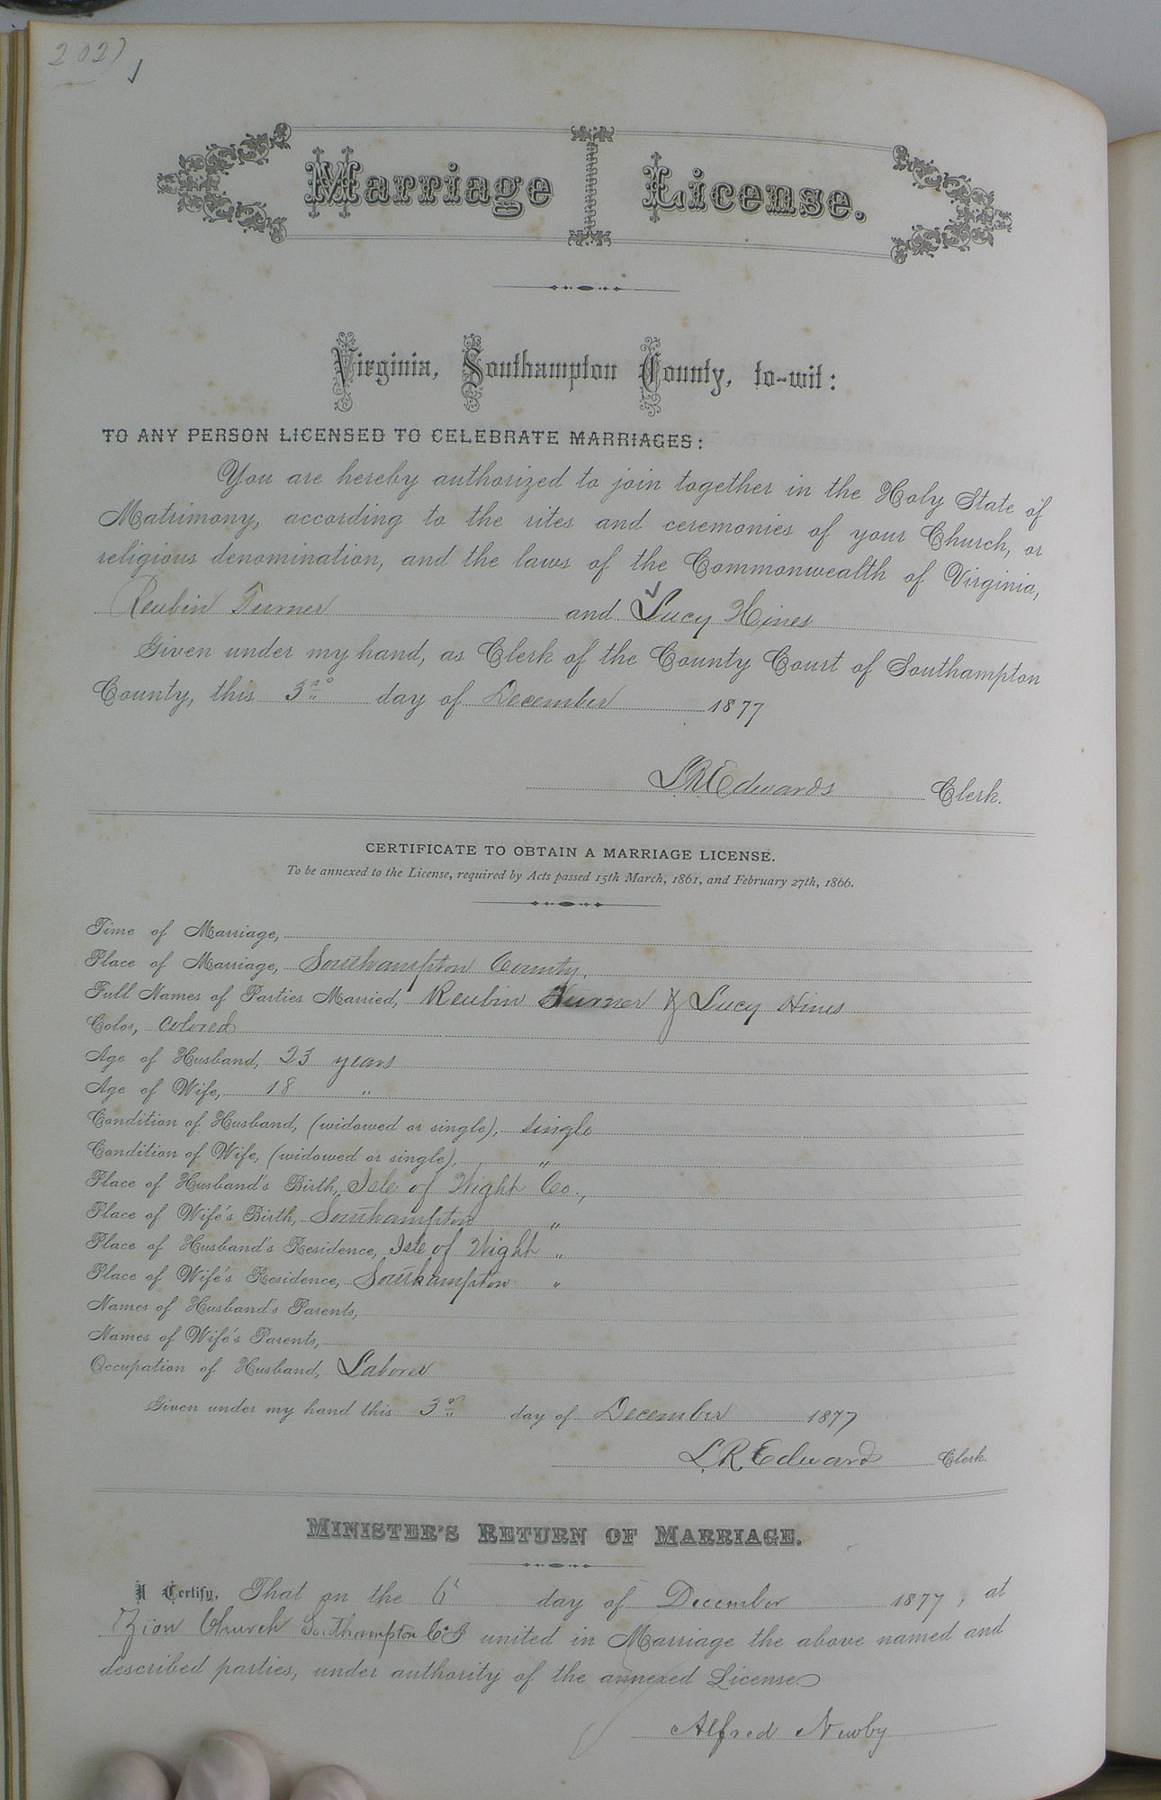 202)
Marriage License.
Virginia, Southampton County, to-wit:
TO ANY PERSON LICENSED TO CELEBRATE MARRIAGES:
You are hereby authorized to join together in the Holy State of
Matrimony, according to the rites and ceremonies of your Church, or
religious denomination, and the laws of the Commonwealth of Virginia,
Reubin Turner and Lucy Hines
Given under my hand, as Clerk of the County Court of Southampton
County, this 3rd day of December 1877
L.R. Edwards Clerk.
CERTIFICATE TO OBTAIN A MARRIAGE LICENSE.
To be annexed to the License, required by Acts passed 15th March, 1861, and February 27th, 1866.
Time of Marriage,
Place of Marriage, Southampton County.
Full Names of Parties Married, Reubin Turner & Lucy Hines
Color, Colored
Age of Husband, 23 years
Age of Wife, 18 "
Condition of Husband, (widowed or single), Single
Condition of Wife, (widowed or single), "
Place of Husband's Birth, Isle of Wight Co.,
Place of Wife's Birth, Southampton "
Place of Husband's Residence, Isle of Wight "
Place of Wife's Residence, Southampton "
Names of Husband's Parents,
Names of Wife's Parents,
Occupation of Husband, Laborer
Given under my hand this 3rd day of December 1877
L.R. Edwards Clerk.
MINISTER'S RETURN OF MARRIAGE.
I Certify, That on the 6t day of December 1877, at
Zion Church Southampton Co I united in Marriage the above named and
described parties, under authority of the annexed License.
Alfred Newby